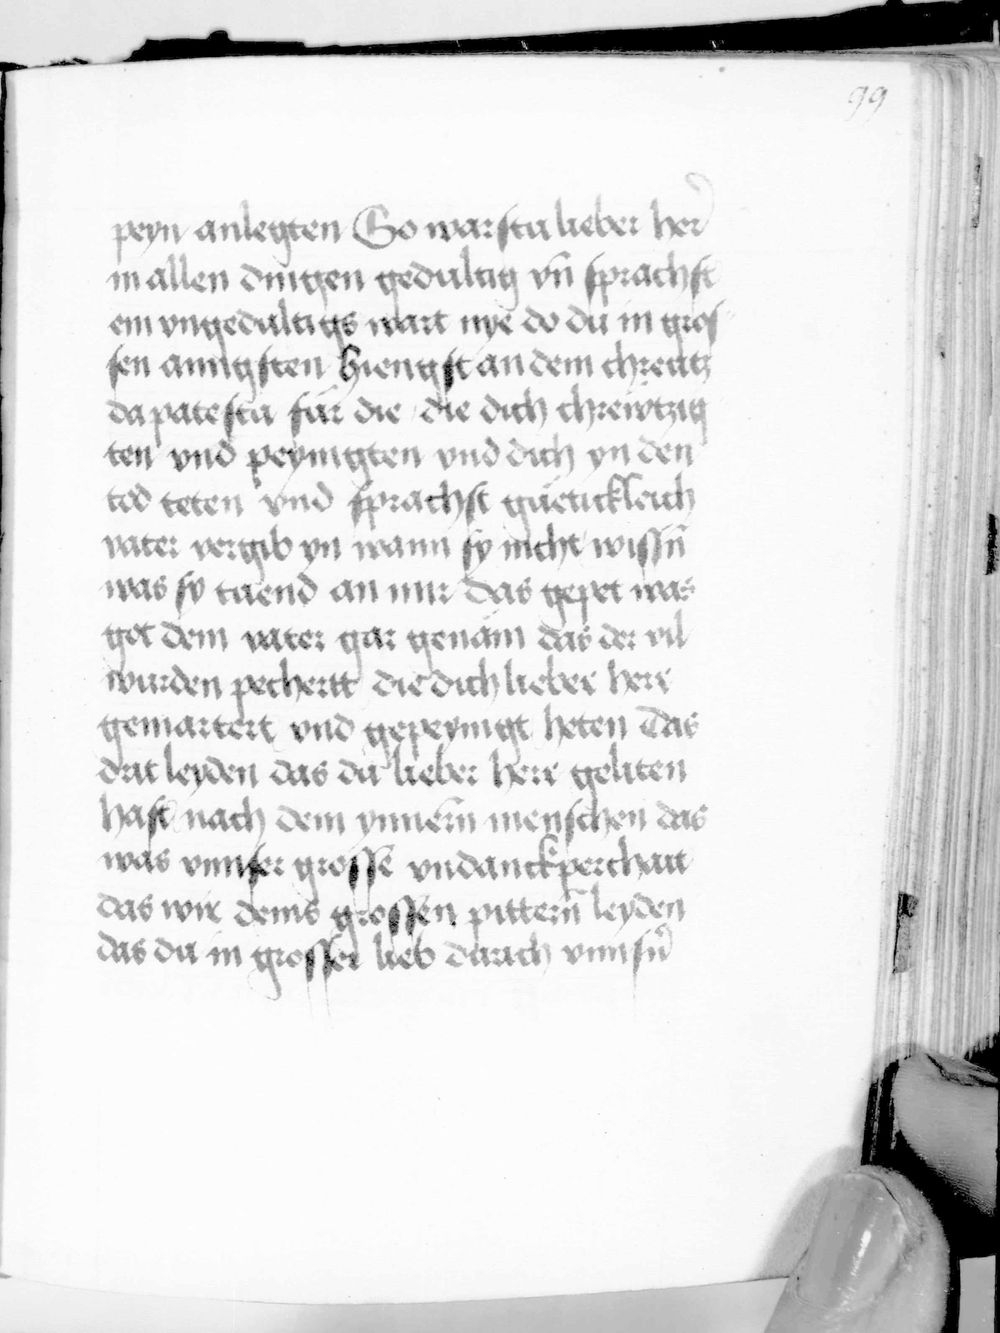 99
peyn anlegten So warstu lieber her̉
in allen dingen gedultig vn̄ sprachst
ein vngedultigs wart nye do du in gros
sen anngsten hiengst an dem chreutz
da patestu für die die dich chrewtzig
ten vnd peynigten vnd dich yn den
tod teten vnd sprachst güetickleich
vater vergib yn wann sy nicht wissn̄
was sy tuend an mir das gepet was
got dem vater gar genäm das der vil
wurden pechertt die dich lieber herr
gemartert vnd gepeynigt heten Das
drit leyden das du lieber herr geliten
hast nach dem ynnern menschen das
was vnnser grosse vndanckperchait
das wir deins grossen pittern̄ leyden
das du in grosser lieb durich vnnsn̉